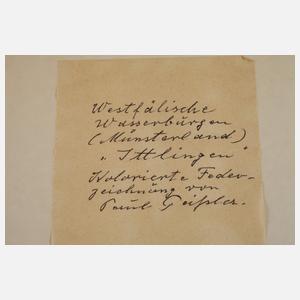 Westfälische
Wasserburgen
(Münsterland)
„Ittlingen"
Kolorierte Feder-
zeichnung von
Paul Geißler.